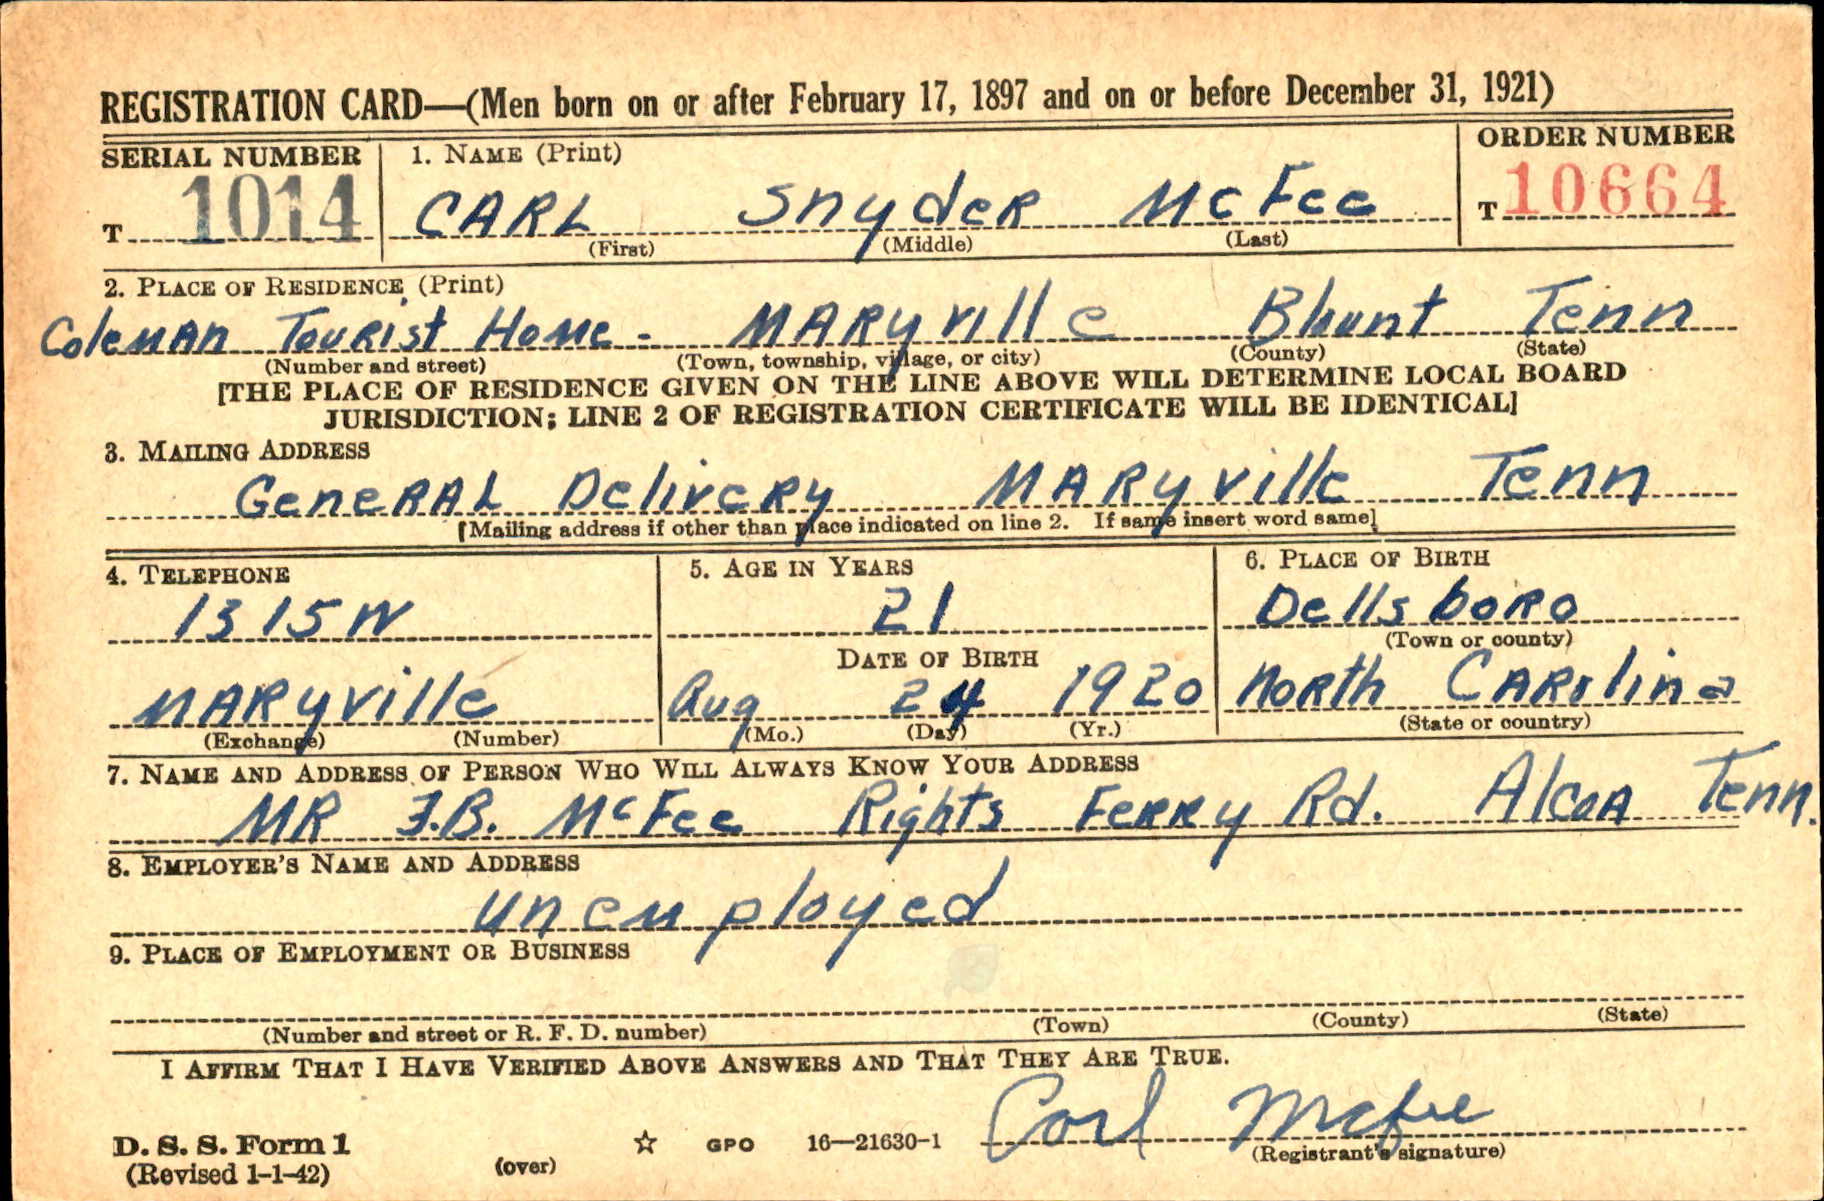 REGISTRATION CARD—(Men born on or after February 17, 1897 and on or before December 31, 1921)
SERIAL NUMBER 1. NAME (Print) ORDER NUMBER
T 1014 CARL Snyder McFee T 10664
(First) (Middle) (Last)
2. PLACE OF RESIDENCE (Print)
Coleman Tourist Home - Maryville Blount Tenn
(Number and street) (Town, township, village, or city) (County) (State)
[THE PLACE OF RESIDENCE GIVEN ON THE LINE ABOVE WILL DETERMINE LOCAL BOARD
JURISDICTION; LINE 2 OF REGISTRATION CERTIFICATE WILL BE IDENTICAL]
3. MAILING ADDRESS
General Delivery Maryville Tenn
[Mailing address if other than place indicated on line 2. If same insert word same]
4. TELEPHONE 5. AGE IN YEARS 6. PLACE OF BIRTH
1315W 21 Dellsboro
(Town or county)
DATE OF BIRTH
Maryville Aug 24 1920 North Carolina
(Exchange) (Number) (Mo.) (Day) (Yr.) (State or country)
7. NAME AND ADDRESS OF PERSON WHO WILL ALWAYS KNOW YOUR ADDRESS
MR J.B. McFee Rights Ferry Rd. Alcoa Tenn.
8. EMPLOYER'S NAME AND ADDRESS
unemployed
9. PLACE OF EMPLOYMENT OR BUSINESS
(Number and street or R. F. D. number) (Town) (County) (State)
I AFFIRM THAT I HAVE VERIFIED ABOVE ANSWERS AND THAT THEY ARE TRUE.
Carl Mcfee
D. S. S. Form 1 (over) ☆ GPO 16—21630-1 (Registrant's signature)
(Revised 1-1-42)